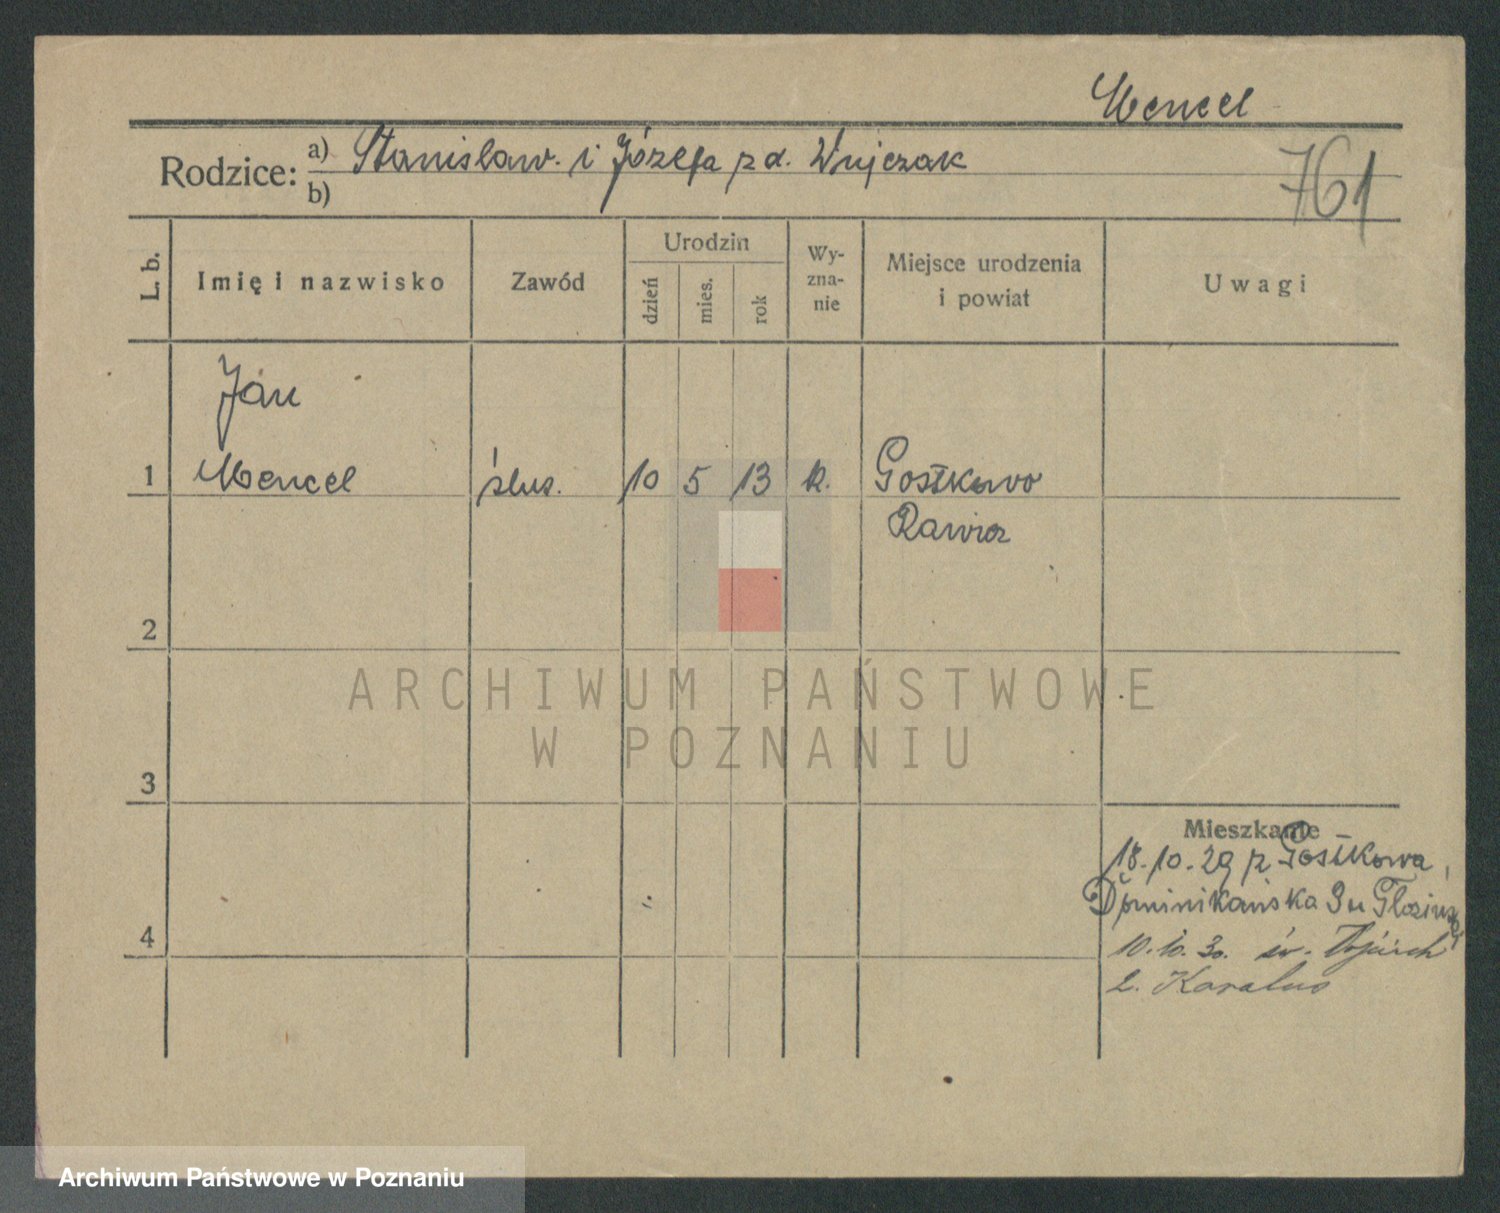 Mencel
Rodzice: a) Stanisław. i Józefa z d. Wujczak
b)
761
L. b.
Imię i nazwisko
Zawód
Urodzin
dzień
mies.
rok
Wy-
zna-
nie
Miejsce urodzenia
i powiat
Uwagi
Jan
1 Mencel ślus. 10 5 13 k. Gostkowo
Rawicz
2
3
4
Mieszkanie
18.10.29 z Gostkowa,
Dominikańska 3 u
10.10.30. św. Wojciech
2.
ARCHIWUM PAŃSTWOWE
W POZNANIU
Archiwum Państwowe w Poznaniu